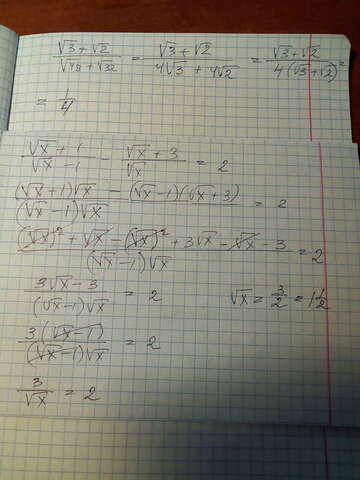 (√3 + √2)/(√48 + √32) = (√3 + √2)/(4√3 + 4√2) = (√3 + √2)/(4(√3 + √2)) =
= 1/4
(√x + 1)/(√x - 1) - (√x + 3)/√x = 2
((√x + 1)√x - (√x - 1)(√x + 3))/((√x - 1)√x) = 2
((√x)² + √x - (√x)² + 3√x - √x - 3)/((√x - 1)√x) = 2
(3√x - 3)/((√x - 1)√x) = 2 √x = 3/2 = 1 1/2
3(√x - 1)/((√x - 1)√x) = 2
3/√x = 2